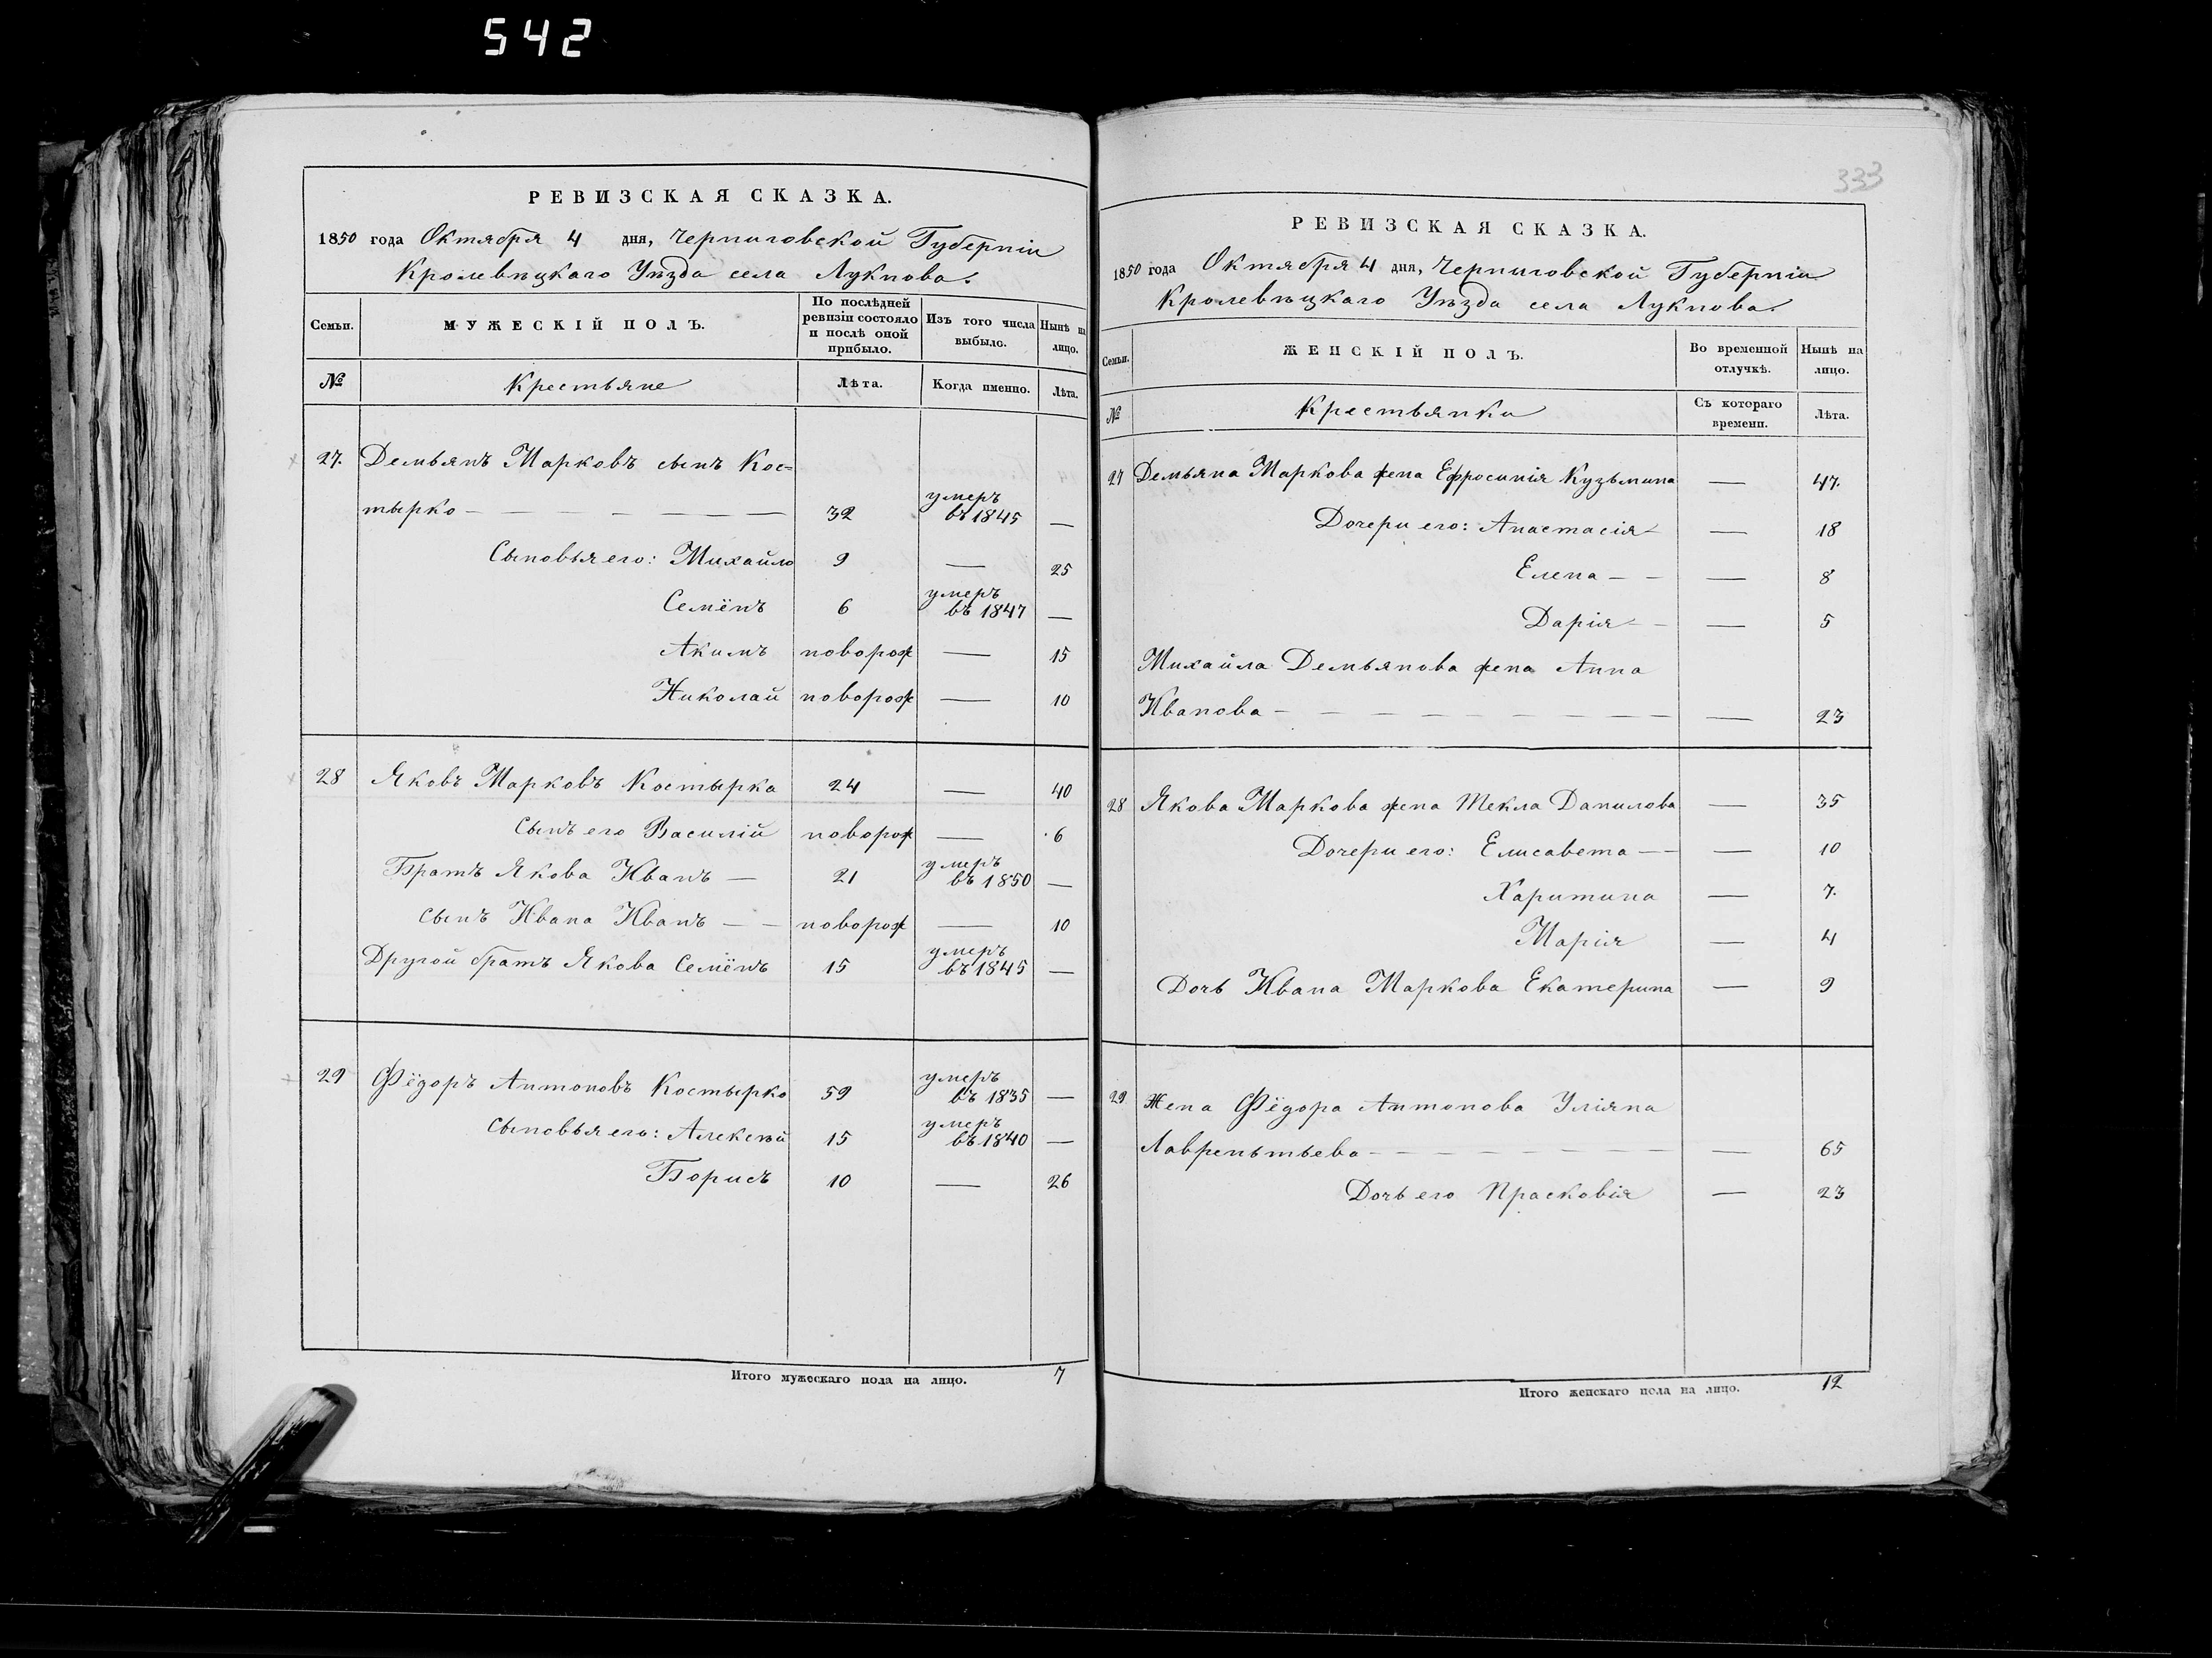 542
РЕВИЗСКАЯ СКАЗКА.
1850 года Октября 4 дня, Черниговской Губерніи
Кролевѣцкаго Уѣзда села Лукнова.
Семьи. МУЖЕСКІЙ ПОЛЪ. По послѣдней ревизіи состояло и послѣ оной прибыло. Изъ того числа выбыло. Нынѣ на лицо.
№ Крестьяне Лѣта. Когда именно. Лѣта.
27. Демьянъ Марковъ сынъ Кос=
тырко — 32 умеръ въ 1845 —
Сыновья его: Михайло 9 — 25
Семёнъ 6 умеръ въ 1847 —
Акимъ новорож — 15
Николай новорож — 10
28 Яковъ Марковъ Костырка 24 — 40
Сынъ его Василій новорож — 6
Братъ Якова Иванъ — 21 умеръ въ 1850 —
Сынъ Ивана Иванъ — — новорож — 10
Другой братъ Якова Семёнъ 15 умеръ въ 1845 —
29 Фёдоръ Антоновъ Костырко 59 умеръ въ 1835 —
Сыновья его: Алексѣй 15 умеръ въ 1840 —
Борисъ 10 — 26
Итого мужескаго пола на лицо. 7
333
РЕВИЗСКАЯ СКАЗКА.
1850 года Октября 4 дня, Черниговской Губерніи
Кролевѣцкаго Уѣзда села Лукнова.
Семьи. ЖЕНСКІЙ ПОЛЪ. Во временной отлучкѣ. Нынѣ на лицо.
№ Крестьянки Съ котораго времени. Лѣта.
27 Демьяна Маркова жена Ефросинія Кузьмина — 47.
Дочери его: Анастасія — — 18
Елена — — — 8
Дарія — — — 5
Михайла Демьянова жена Анна
Иванова — — 23
28 Якова Маркова жена Текла Данилова — 35
Дочери его: Елисавета — — — 10
Харитина — 7.
Марія — 4
Дочь Ивана Маркова Екатерина — 9
29 Жена Фёдора Антонова Уліяна
Лаврентьева — — 65
Дочь его Прасковія — 23
Итого женскаго пола на лицо. 12